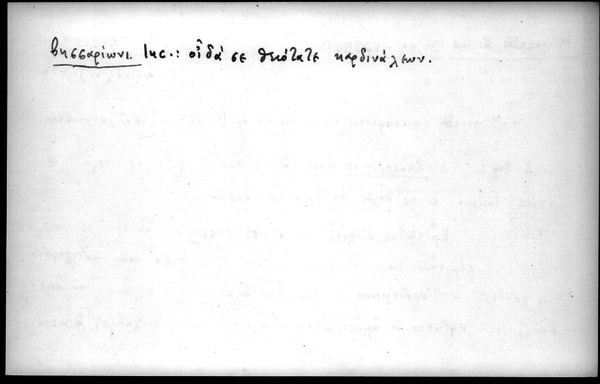 Βησσαρίωνι. Inc.: οἶδά σε θειότατε καρδινάλεων.